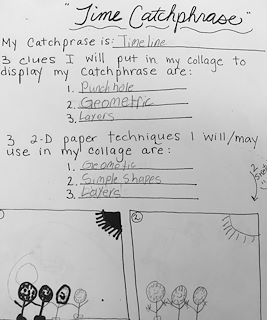 "Time Catchphrase"
My Catchprase is: Timeline
3 clues I will put in my collage to
display my catchphrase are:
1. Punch hole
2. Geometric
3. Layers
3 2-D paper techniques I will/may
use in my collage are:
1. Geometic
2. Simple shapes
3. Layers
2